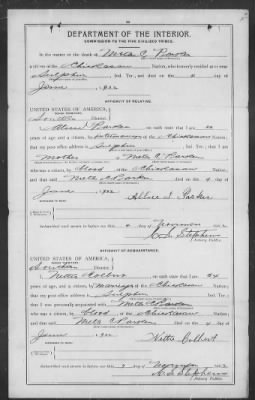 DEPARTMENT OF THE INTERIOR.
COMMISSION TO THE FIVE CIVILIZED TRIBES.
In the matter of the death of Meta C Parker
a citizen of the Chickasaw Nation, who formerly resided at or near
Sulphur, Ind. Ter., and died on the day of
June, 1902
AFFIDAVIT OF RELATIVE.
UNITED STATES OF AMERICA,
INDIAN TERRITORY,
Southern District
I, Parker, on oath state that I am
years of age and a citizen, by intermarriage, of the Chickasaw Nation;
that my post office address is Sulphur, Ind. Ter.; that I am
Mother of Meta C Parker
who was a citizen, by blood, of the Chickasaw Nation,
and that said Meta C Parker died on the day of
June, 1902
Parker
Subscribed and sworn to before me this day of 1902
Notary Public.
AFFIDAVIT OF ACQUAINTANCE.
UNITED STATES OF AMERICA,
INDIAN TERRITORY,
Southern District
I, Colbert, on oath state that I am 24
years of age, and a citizen by marriage of the Chickasaw Nation;
that my post office address is Sulphur, Ind. Ter.;
that I was personally acquainted with Meta C Parker
who was a citizen, by blood, of the Chickasaw Nation,
and that said Meta C Parker died on the day of
June, 1902
Colbert
Subscribed and sworn to before me this day of 1902
Notary Public.